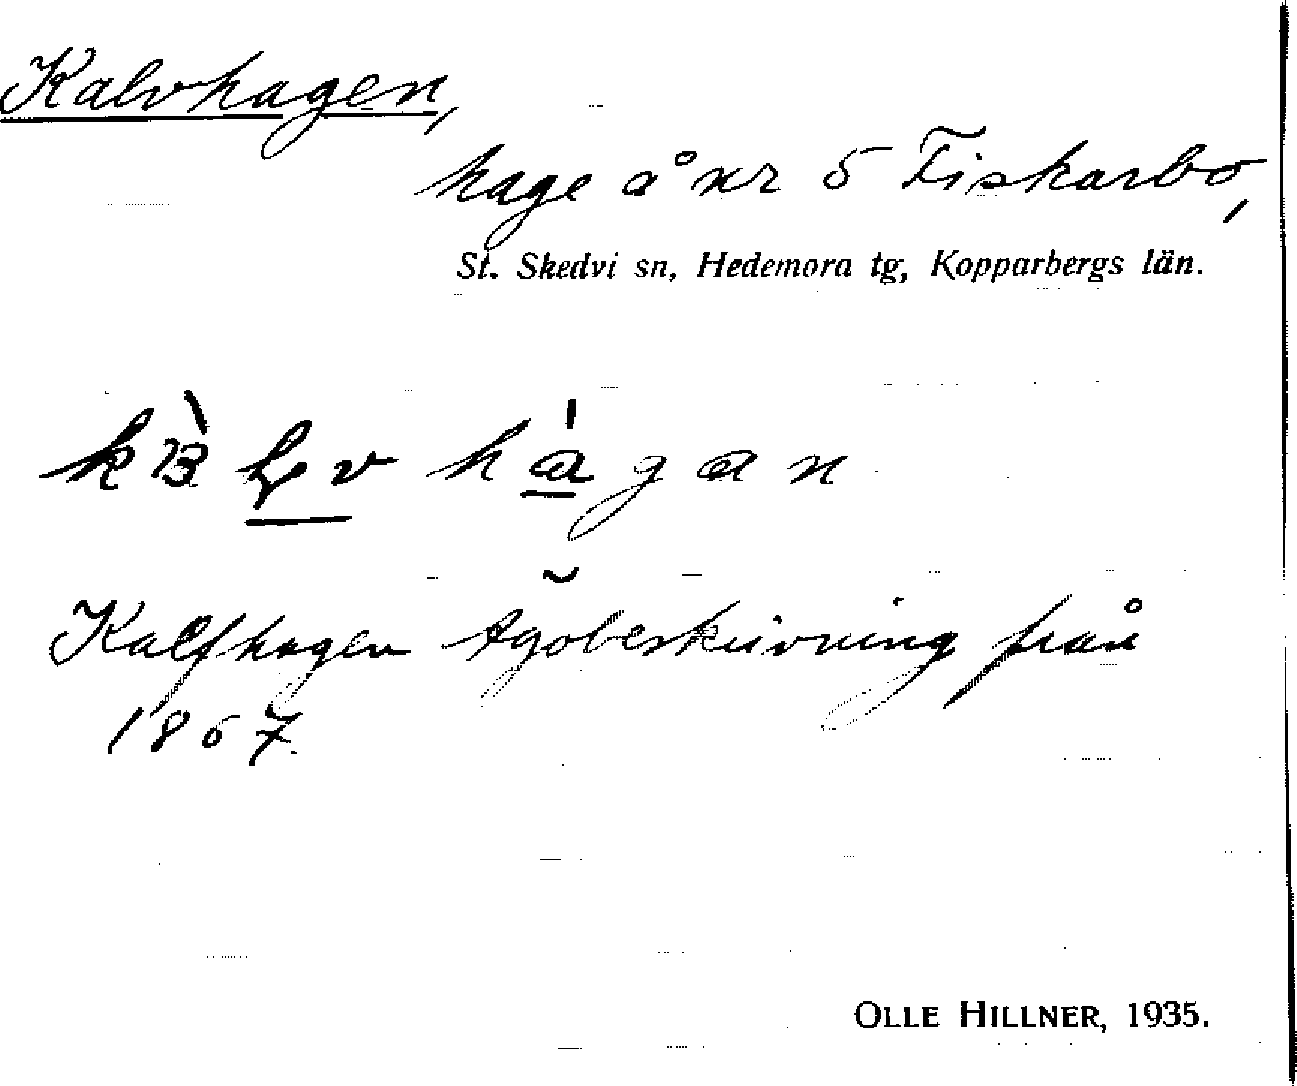 Kalvhagen,
hage å nr 5 Fiskarbo,
St. Skedvi sn, Hedemora tg, Kopparbergs län.
hagan
Kalfhagen Ägobeskrivning från
1867.
OLLE HILLNER, 1935.